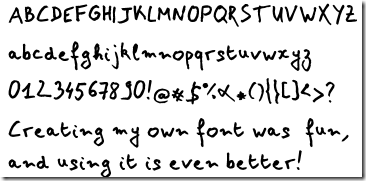 ABCDEFGHIJKLMNOPQRSTUVWXYZ
abcdefghijklmnopqrstuvwxyz
0123456789O!@#$%&*(){}[]<>?
Creating my own font was fun,
and using it is even better!